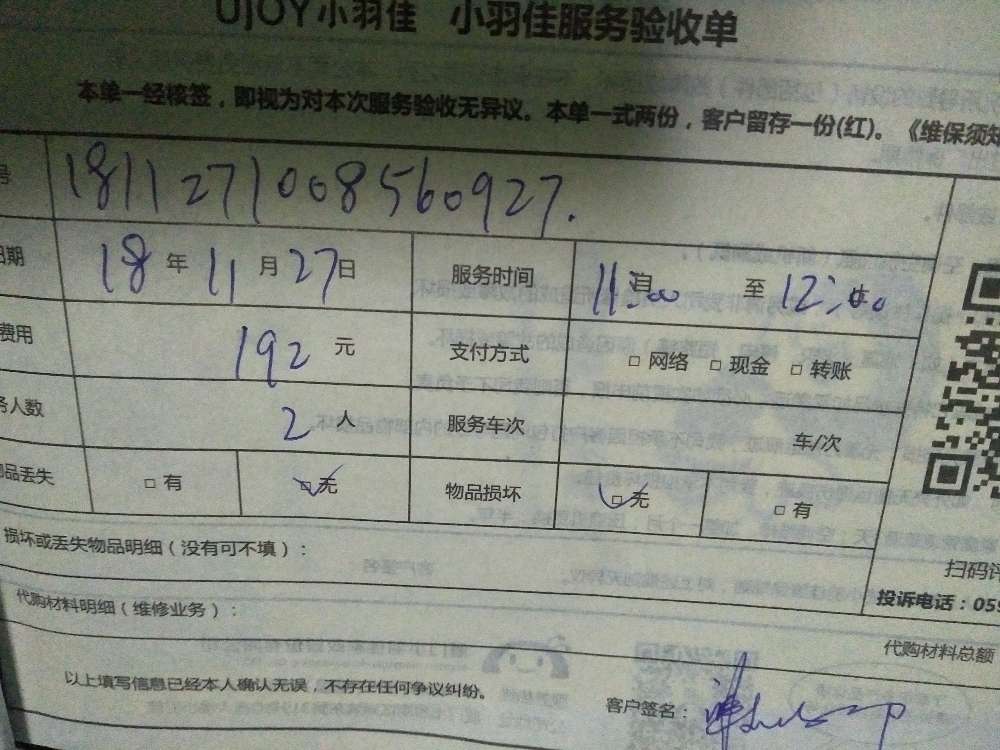 UJOY小羽佳 小羽佳服务验收单
本单一经核签，即视为对本次服务验收无异议。本单一式两份，客户留存一份(红)。《维保须知
号 1811271008560927.
日期 18 年 11 月 27 日 服务时间 11:00 至 12:00
费用 192 元 支付方式 □ 网络 □ 现金 □ 转账
务人数 2 人 服务车次 车/次
物品丢失 □ 有 ☑ 无 物品损坏 ☑ 无 □ 有
损坏或丢失物品明细（没有可不填）：
扫码评
投诉电话：059
代购材料明细（维修业务）：
代购材料总额
以上填写信息已经本人确认无误，不存在任何争议纠纷。
客户签名：